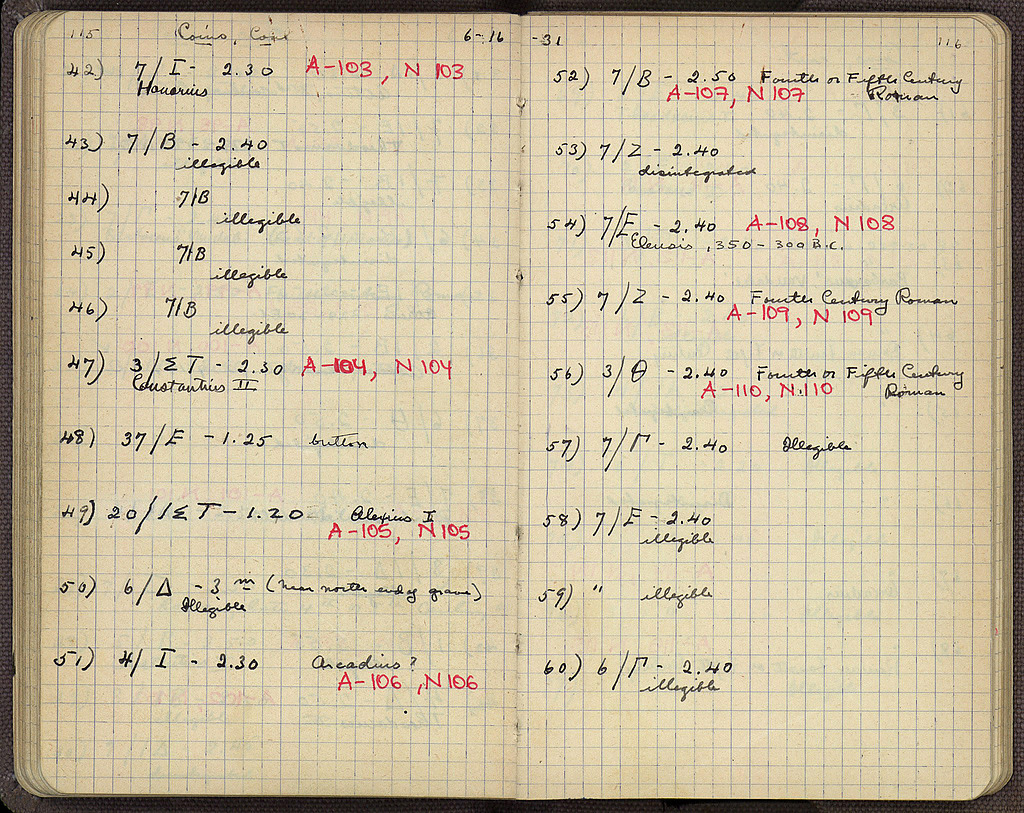 115 Coins, Cont 6-16
42) 7/I - 2.30 A-103, N 103
Honorius
43) 7/B - 2.40
illegible
44) 7/B
illegible
45) 7/B
illegible
46) 7/B
illegible
47) 3/ΣT - 2.30 A-104, N 104
Constantius II
48) 37/E - 1.25 button
49) 20/IΣT - 1.20 Alexius I
A-105, N 105
50) 6/Δ - 3 m (near north end of grave)
Illegible
51) 4/I - 2.30 Arcadius?
A-106, N106
-31 116
52) 7/B - 2.50 Fourth or Fifth Century
A-107, N 107 Roman
53) 7/Z - 2.40
disintegrated
54) 7/E - 2.40 A-108, N 108
Eleusis, 350-300 B.C.
55) 7/Z - 2.40 Fourth Century Roman
A-109, N 109
56) 3/Θ - 2.40 Fourth or Fifth Century
A-110, N.110 Roman
57) 7/Γ - 2.40 Illegible
58) 7/E - 2.40
illegible
59) " illegible
60) 6/Γ - 2.40
illegible